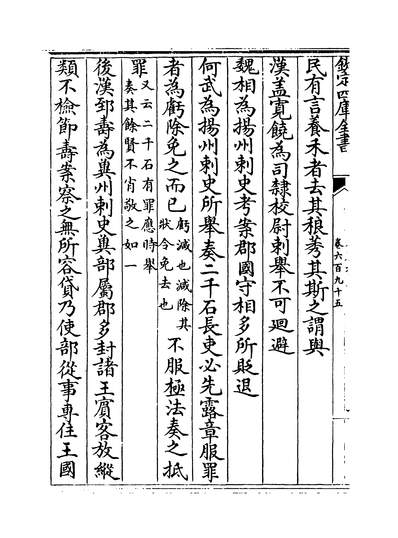 欽定四庫全書
卷六百九十五
民有言養禾者去其稂莠其斯之謂與
漢蓋寛饒為司隸校尉刺舉不可迴避
魏相為揚州刺史考案郡國守相多所貶退
何武為揚州刺史所舉奏二千石長吏必先露章服罪
者為虧除免之而已虧減也減除其狀令免去也不服極法奏之抵
罪又云二千石有罪應時舉奏其餘賢不肖敬之如一
後漢郅壽為冀州刺史冀部屬郡多封諸王賓客放縱
類不檢節壽案察之無所容貸乃使部從事専住王國